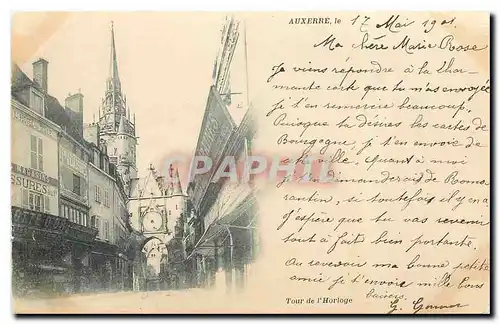 AUXERRE, le 17 Mai 1901.
Ma chère Marie Rose
Je viens répondre à la char-
mante carte que tu m'as envoyée
je t'en remercie beaucoup,
Puisque tu désires les cartes de
Bourgogne, je t'en envoie de
ma ville, quant à moi
je t'en demanderais de Romo
rantin, si toutefois il y en a
J'espère que tu vas revenir
tout à fait bien portante.
Au revoir ma bonne petite
amie je t'envoie mille bons
baisers
G.
Tour de l'Horloge
CPA PHOTO